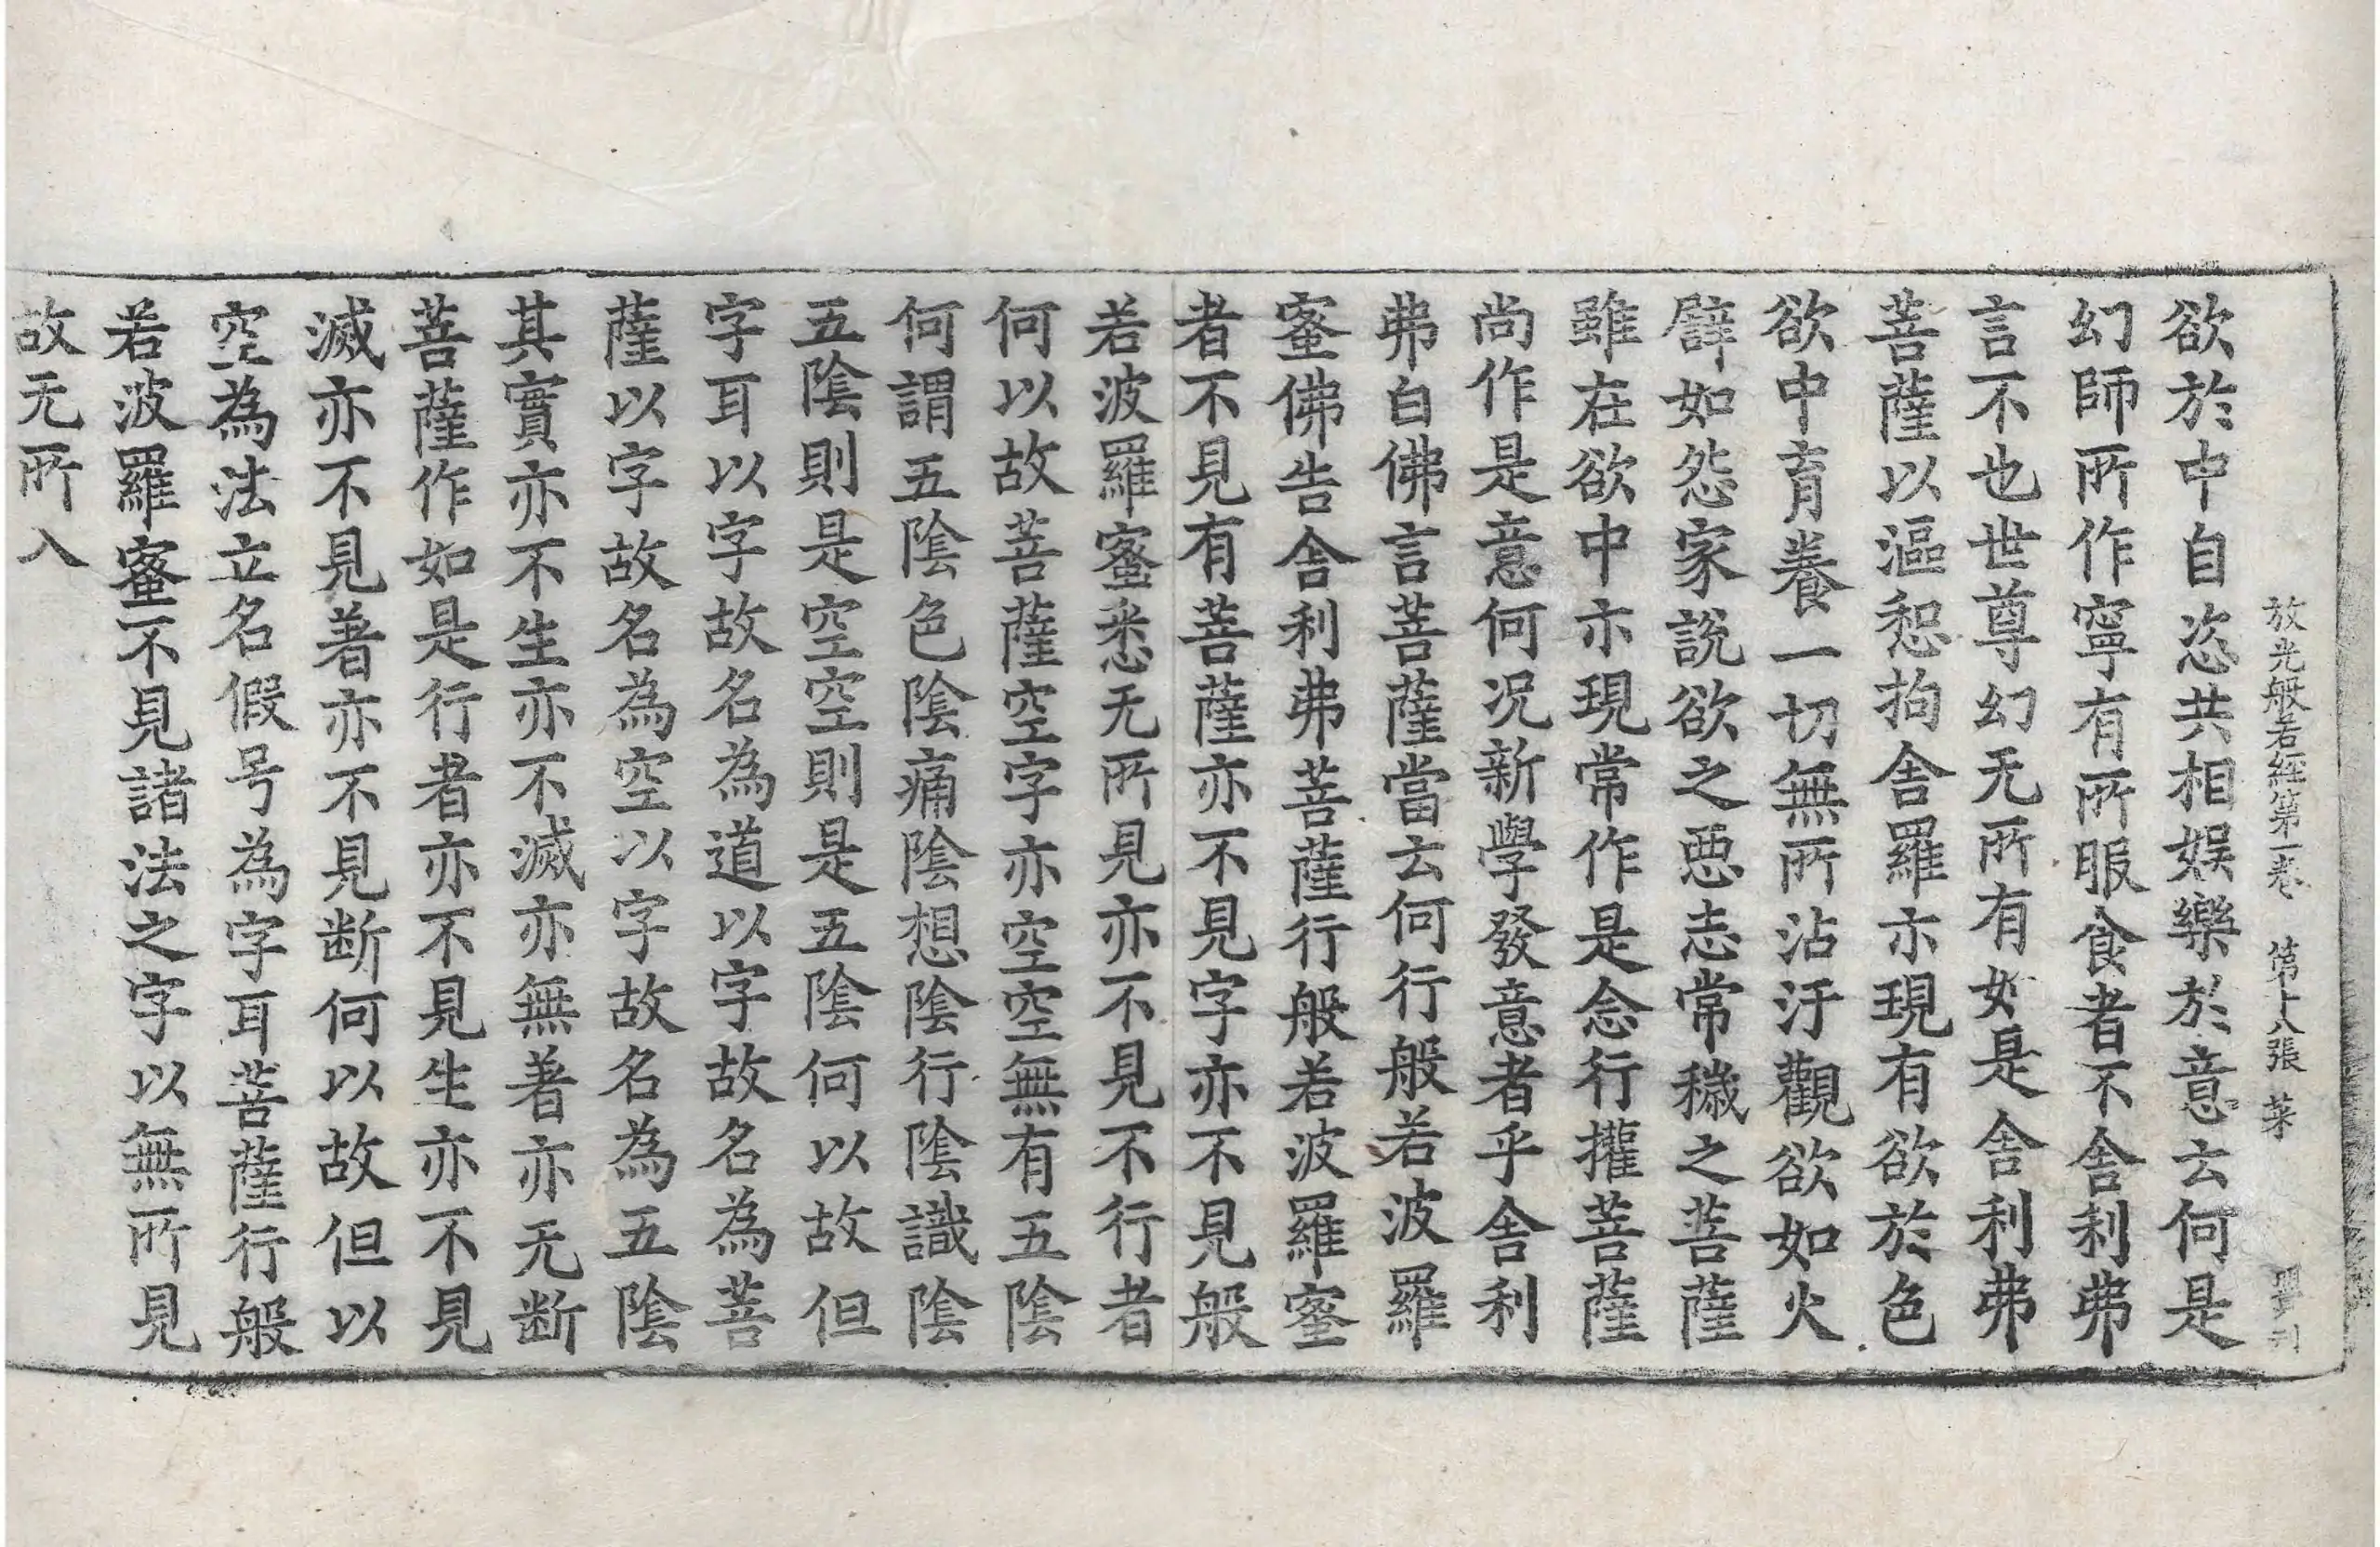 放光般若經第一卷 第十八張 菜
欲於中自恣共相娛樂於意云何是
幻師所作寧有所服食者不舍利弗
言不也世尊幻无所有如是舍利弗
菩薩以漚惒拘舍羅亦現有欲於色
欲中育養一切無所沾汙觀欲如火
譬如怨家說欲之惡志常穢之菩薩
雖在欲中亦現常作是念行權菩薩
尚作是意何况新學發意者乎舍利
弗白佛言菩薩當云何行般若波羅
蜜佛告舍利弗菩薩行般若波羅蜜
者不見有菩薩亦不見字亦不見般
若波羅蜜悉无所見亦不見不行者
何以故菩薩空字亦空空無有五陰
何謂五陰色陰痛陰想陰行陰識陰
五陰則是空空則是五陰何以故但
字耳以字故名為道以字故名為菩
薩以字故名為空以字故名為五陰
其實亦不生亦不滅亦無著亦无断
菩薩作如是行者亦不見生亦不見
滅亦不見著亦不見断何以故但以
空為法立名假号為字耳菩薩行般
若波羅蜜不見諸法之字以無所見
故无所入